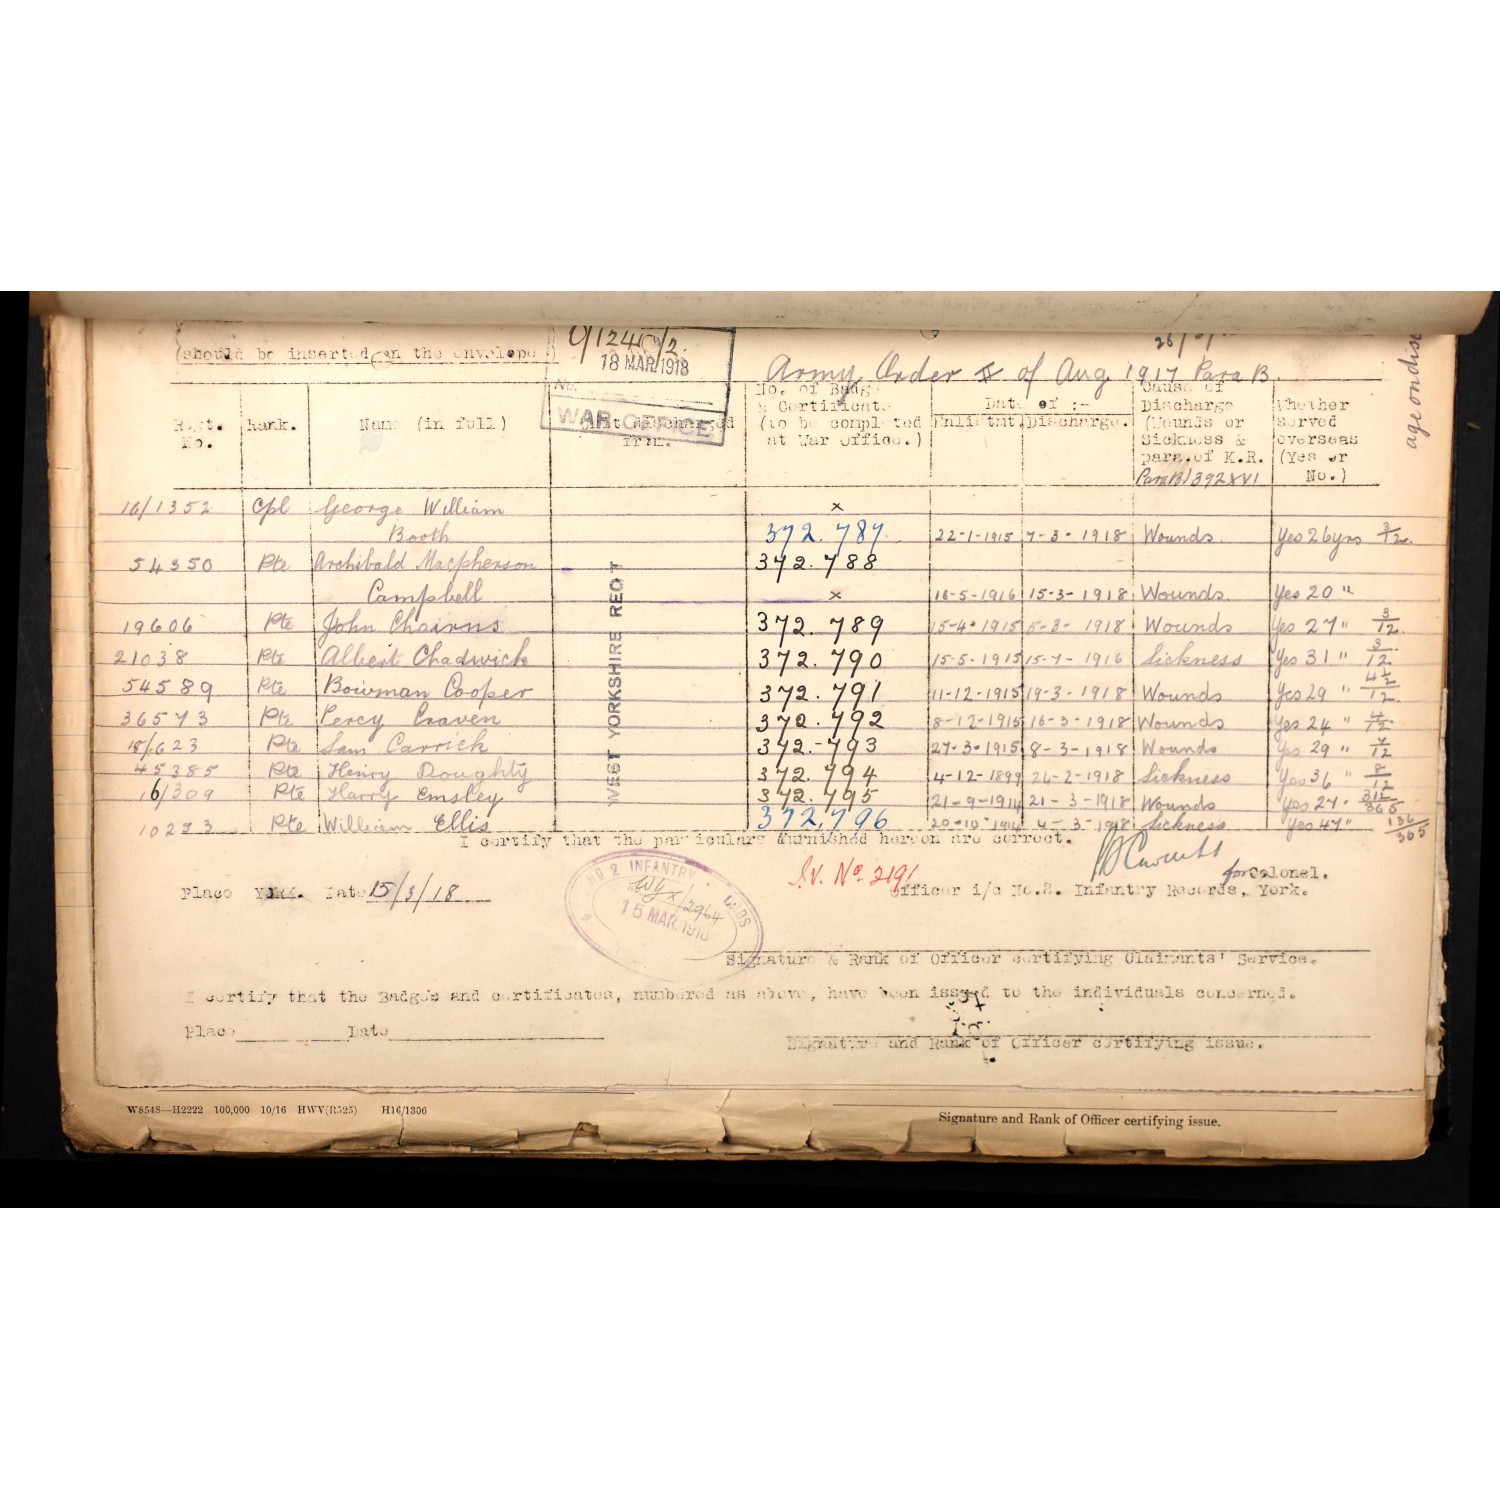 9/1240/2.
(should be inserted on the envelope)
18 MAR 1918
No.
WAR OFFICE
26/
Army Order X of Aug 1917 Para B.
age on disc
Regt. No.
Rank.
Name (in full)
Unit discharged from.
No. of Badge & Certificate (to be completed at War Office.)
Date of :-
Enlistmt.
Discharge.
Cause of Discharge (Wounds or Sickness & para. of K.R.
Para B) 392 XVI
Whether served overseas (Yes or No.)
WEST YORKSHIRE REGT
16/1352 Cpl George William x
Booth 372.787. 22-1-1915 7-3-1918 Wounds. Yes 26yrs 3/12.
54350 Pte Archibald Macpherson 372.788
Campbell x 16-5-1916 15-3-1918 Wounds. Yes 20 "
19606 Pte John Chairns 372.789 15-4-1915 5-3-1918 Wounds Yes 27 " 3/12.
21038 Pte Albert Chadwick 372.790 15-5-1915 15-7-1916 Sickness Yes 31 " 3/12.
54589 Pte Bowman Cooper 372.791 11-12-1915 19-3-1918 Wounds Yes 29 " 4½/12.
36573 Pte Percy Craven 372.792 8-12-1915 16-3-1918 Wounds Yes 24 " 4/12.
18/623 Pte Sam Carrick 372.-793 27-3-1915 8-3-1918 Wounds Yes 29 " 7/12
45385 Pte Henry Doughty 372.794 4-12-1899 24-2-1918 Sickness Yes 36 " 8/12
16/309 Pte Harry Emsley 372.795 21-9-1914 21-3-1918 Wounds Yes 27 " 312/365
10273 Pte William Ellis 372,796 20-10-1914 4-3-1918 Sickness Yes 47 " 136/365
I certify that the particulars furnished hereon are correct.
for Colonel.
Place YORK. Date 15/3/18
Iv. No 2191
Officer i/c No.2. Infantry Records, York.
NO 2 INFANTRY
WY X/2964
15 MAR 1918
Signature & Rank of Officer certifying Claimants' Service.
I certify that the Badges and certificates, numbered as above, have been issued to the individuals concerned.
Place Date
Signature and Rank of Officer certifying issue.
W8548—H2222 100,000 10/16 HWV(R525) H16/1306
Signature and Rank of Officer certifying issue.